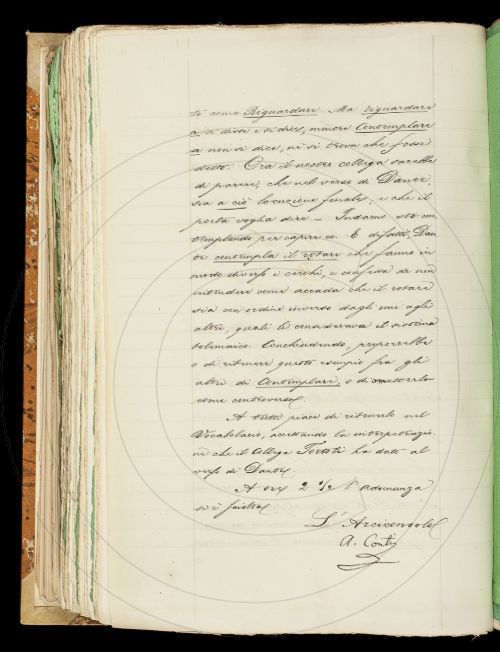 te come Riguardare. Ma riguardare
a si disse e si dice, mentre Contemplare
a non si dice, nè si trova che fosse
detto. Ora il nostro collega sarebbe
di parere, che nel verso di Dante,
sia a ciò locuzione finale, e che il
poeta voglia dire — Indarno sto con
templando per capire ciò. E difatti, Dan
te contempla il rotare che fanno in
modo diverso i cerchi, e confessa di non
intendere come accada che il rotare
sia con ordine inverso dagli uni agli
altri, quali li considerava il sistema
tolemaico. Conchiudendo, proporrebbe
o di ritenere questo esempio fra gli
altri di Contemplare, o di ometterlo
come controverso.
A tutti piace di ritenerlo nel
Vocabolario, accettando la interpretazio
ne che il Collega Tortoli ha dato al
verso di Dante.
A ore 2 1/2 l'Adunanza
si è sciolta.
L'Arciconsolo
A. Conti